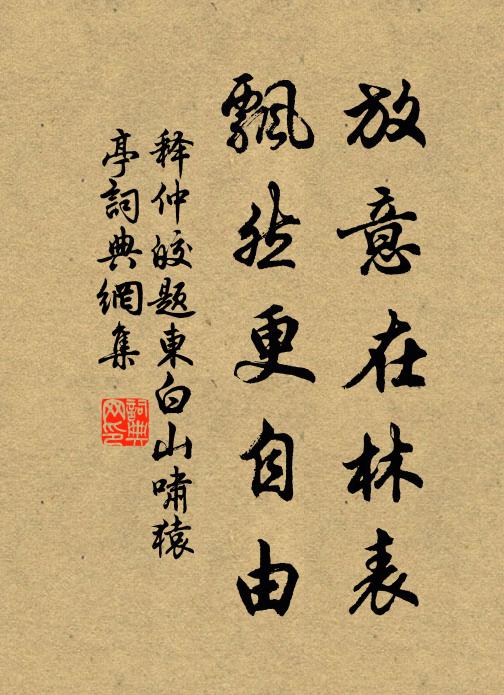 放意在林表
飄然更自由
释仲皎题東白山嘯猿
亭詞典網集
詞典
网印